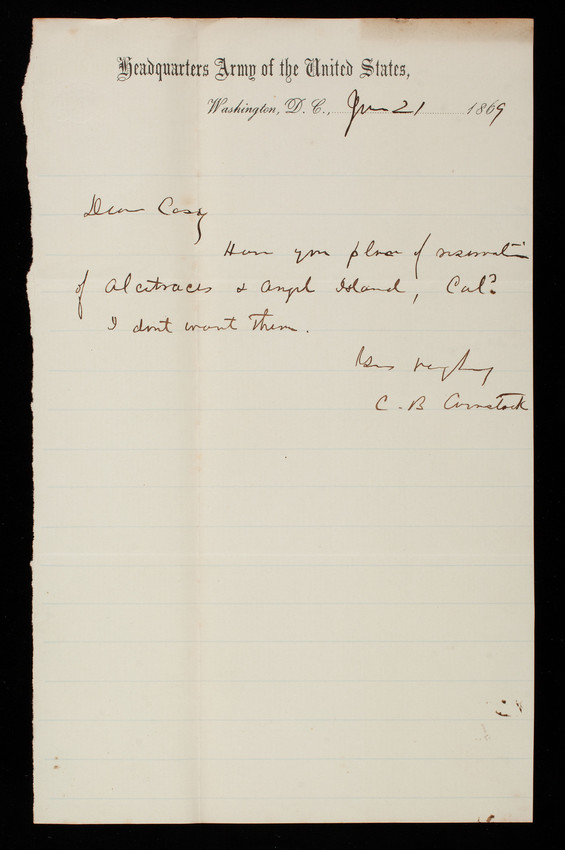 Headquarters Army of the United States,
Washington, D. C., Jan 21 1869
Dear Casey
Have you plans of reservation
of Alcatraces & Angel Island, Cal?
I dont want them.
Yours
C. B Comstock